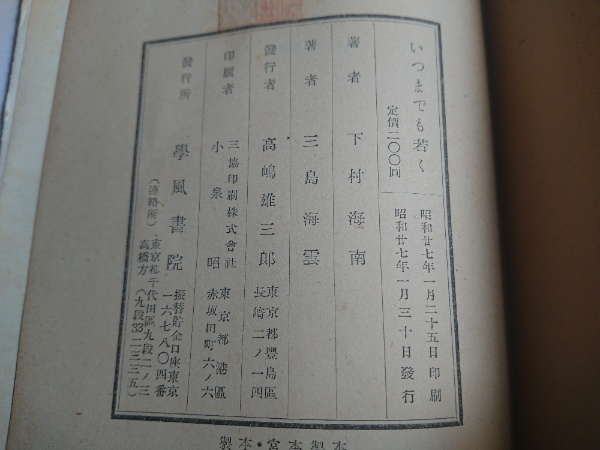 いつまでも若く
定價二〇〇圓
昭和廿七年一月二十五日印刷
昭和廿七年一月三十日發行
著者 下村海南
著者 三島海雲
發行者 高嶋雄三郎
東京都豐島區
長崎二ノ一四
印刷者 三協印刷株式會社
小泉昭
東京都港區
赤坂田町六ノ六
發行所 學風書院
振替貯金口座東京
一六七八〇四番
(連絡所)東京都千代田區九段二ノ三
高橋方(九段33二三三五)
製本・宮本製本